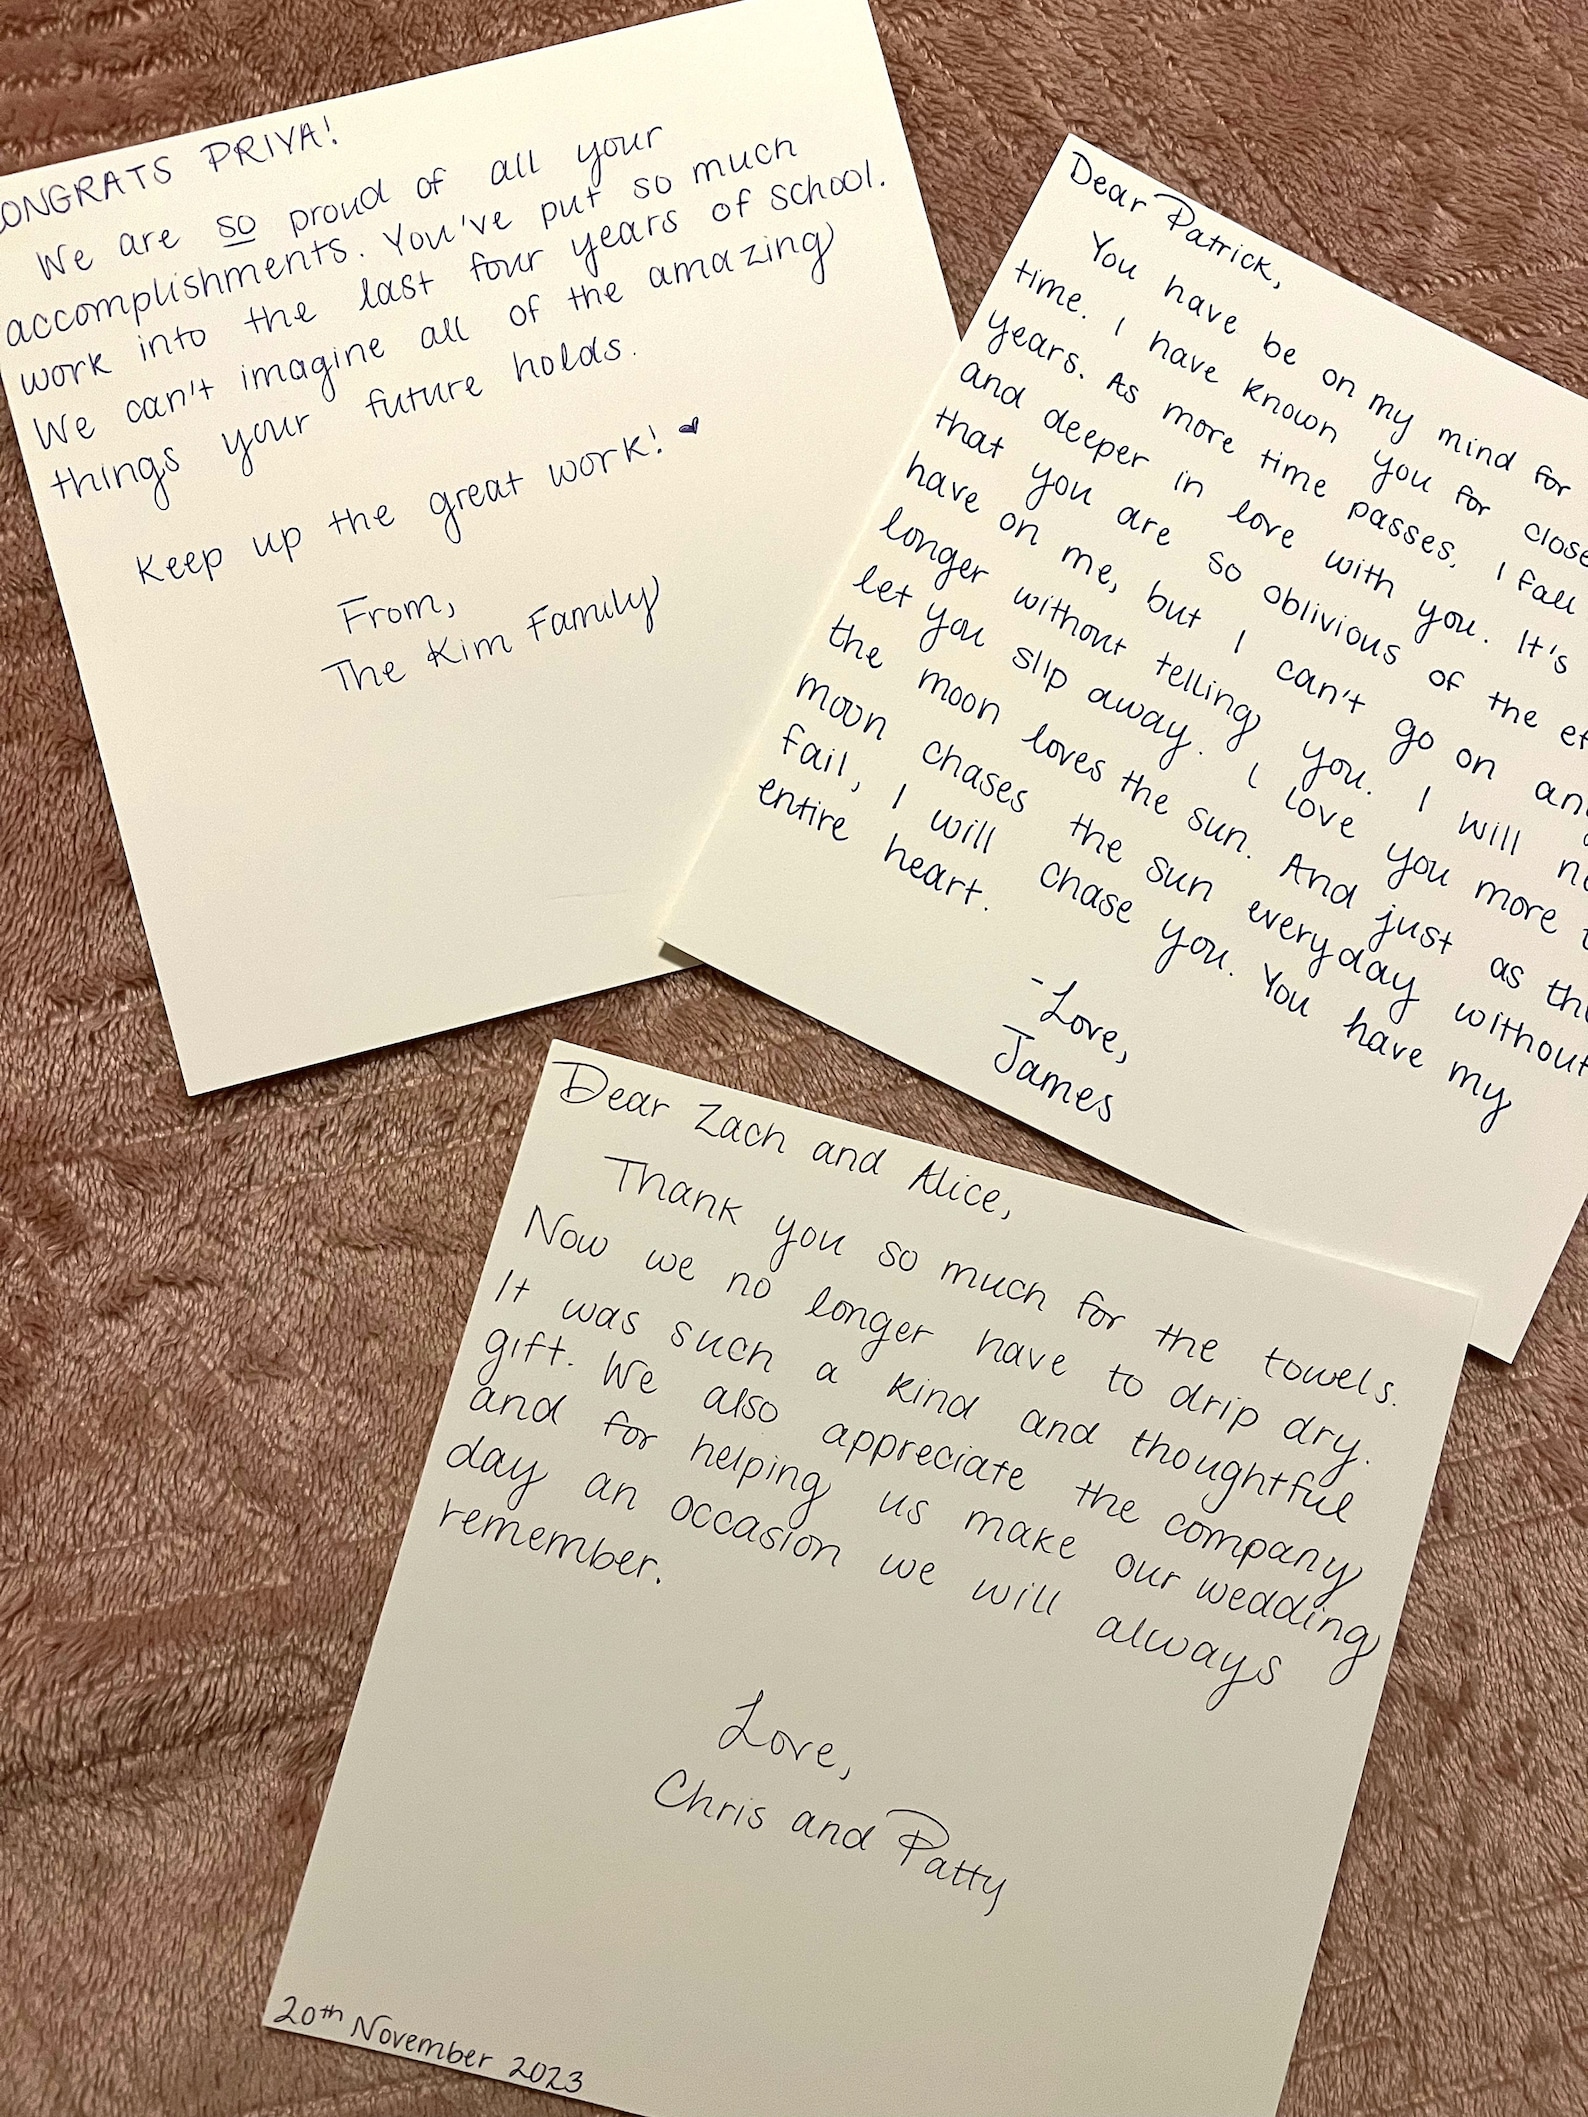 ONGRATS PRIYA!
We are so proud of all your
accomplishments. You've put so much
work into the last four years of school.
We can't imagine all of the amazing
things your future holds.
Keep up the great work! ♥
From,
The Kim Family
Dear Patrick,
You have be on my mind for
time. I have known you for close
years. As more time passes, I fall
and deeper in love with you. It's
that you are so oblivious of the
have on me, but I can't go on
longer without telling you. I will
let you slip away. I love you more
the moon loves the sun. And just as
moon chases the sun everyday without
fail, I will chase you. You have my
entire heart.
-Love,
James
Dear Zach and Alice,
Thank you so much for the towels.
Now we no longer have to drip dry.
It was such a kind and thoughtful
gift. We also appreciate the company
and for helping us make our wedding
day an occasion we will always
remember.
Love,
Chris and Patty
20th November 2023